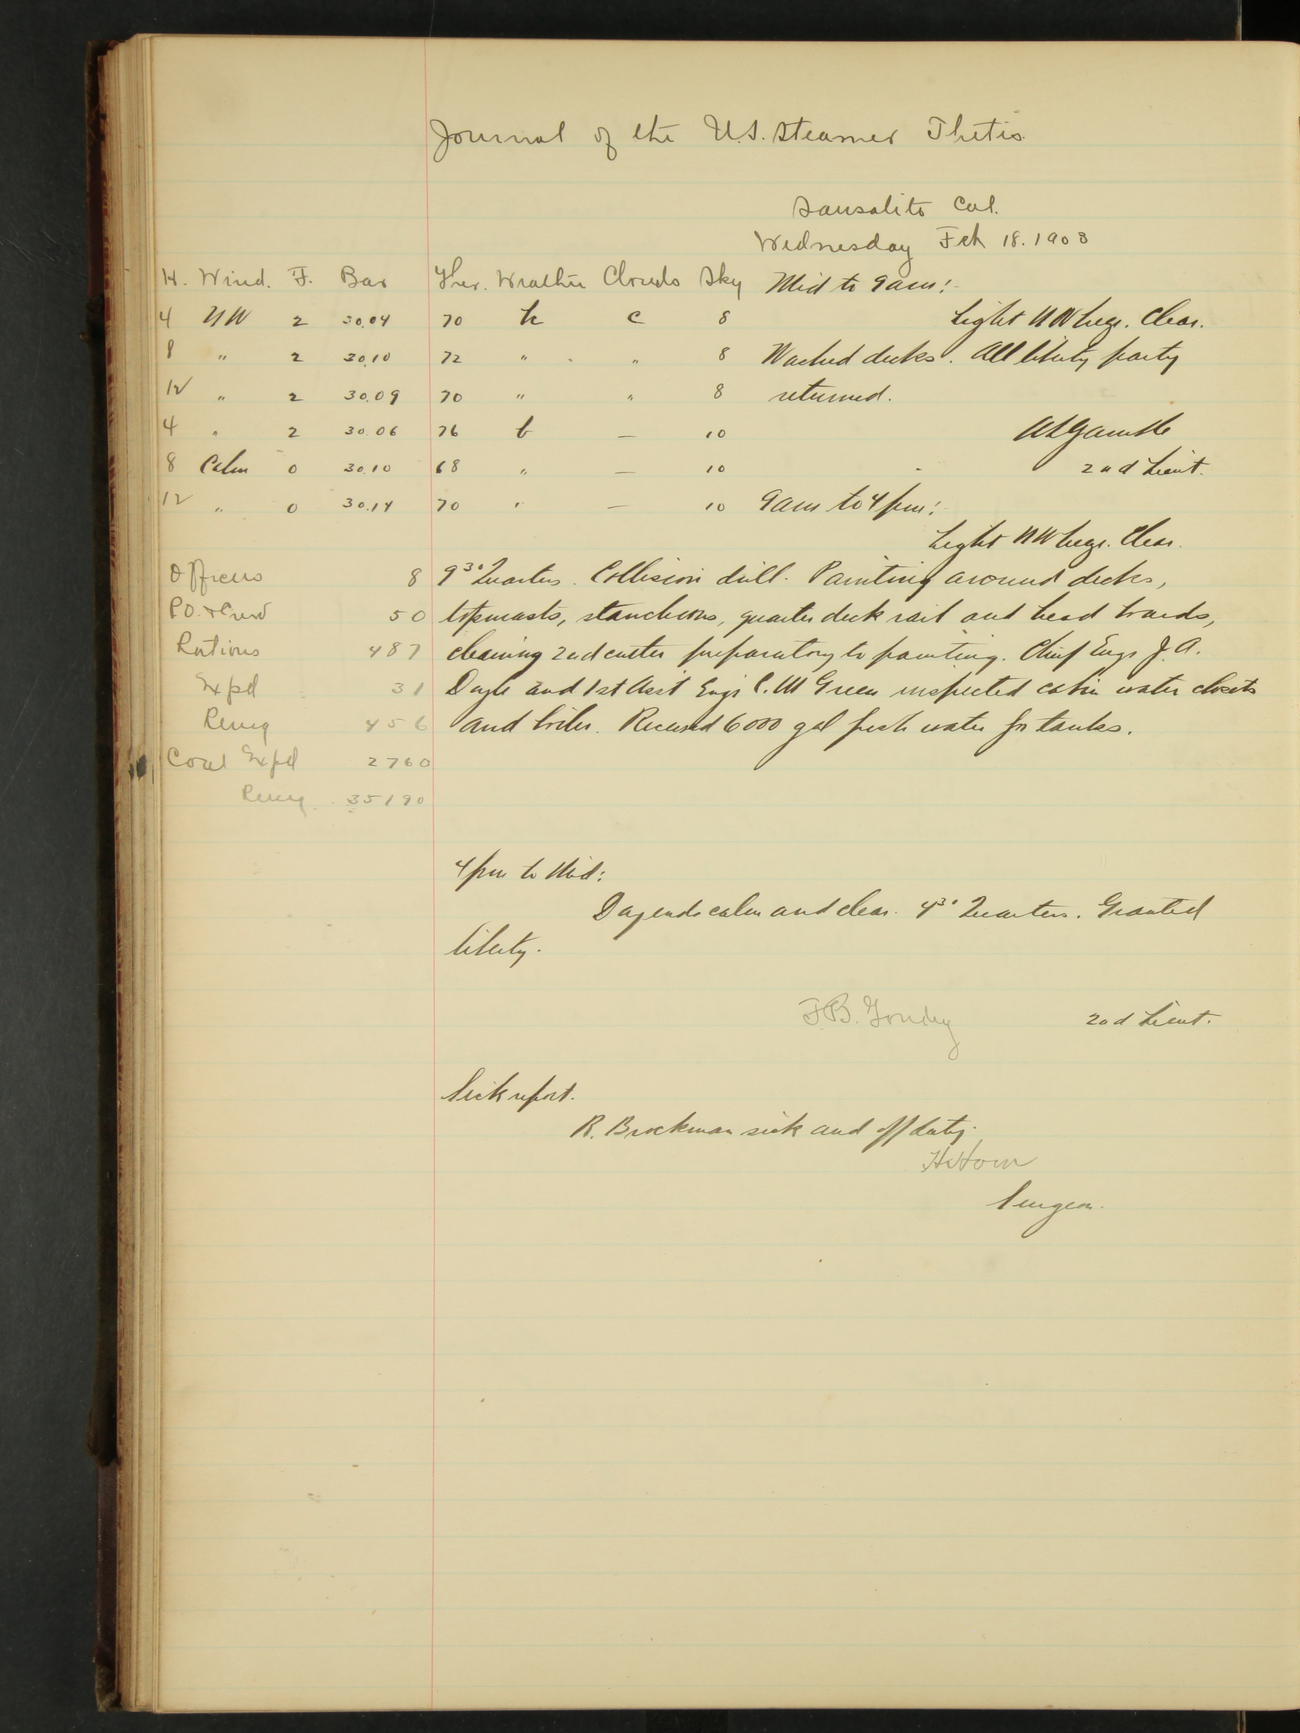 Journal of the U.S. Steamer Thetis
Sausalito Cal.
Wednesday Feb 18. 1903
H. Wind. F. Bar Ther. Weather Clouds Sky
4 NW 2 30.04 70 bc c 8
8 " 2 30.10 72 " " 8
12 " 2 30.09 70 " " 8
4 " 2 30.06 76 b — 10
8 Calm 0 30.10 68 " — 10
12 " 0 30.14 70 " — 10
Mid to 9 am:
Light NW brgs. Clear.
Washed decks. All liberty party
returned.
A L Gamble
2nd Lieut.
9 am to 4 pm:
Light NW brgs. Clear.
Officers 8
P.O. & Crew 50
Rations 487
Expd 31
Remg 456
Coal Expd 2760
Remg 35190
9³⁰ Quarters. Collision drill. Painting around decks,
topmasts, stanchions, quarter deck rail and head boards,
cleaning 2nd cutter preparatory to painting. Chief Engr J. A.
Doyle and 1st Asst Engr C. M Green inspected cabin water closets
and boiler. Received 6000 gal fresh water for tanks.
4 pm to Mid:
Day ends calm and clear. 4³⁰ Quarters. Granted
liberty.
F.B. 2nd Lieut.
Sick report.
R. Brockman sick and off duty.
H Horn
Surgeon.